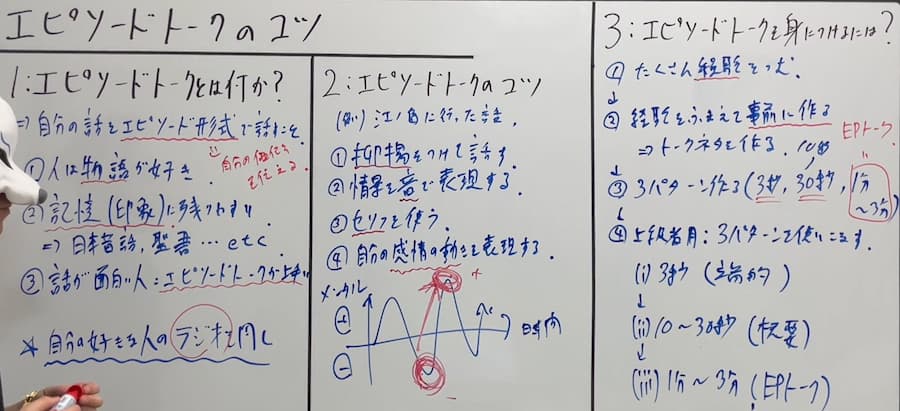 エピソードトークのコツ
1:エピソードトークとは何か?
⇒自分の話をエピソード形式で話すこと
自分の価値を
を伝える
①人は物語が好き
②記憶(印象)に残りやすい
⇒日本昔話,聖書…etc
③話が面白い人:エピソードトークが上手い
☆自分の好きな人のラジオを聞く
2:エピソードトークのコツ
(例)江ノ島に行った話.
①抑揚をつけて話す
②情景を音で表現する.
③セリフを使う
④自分の感情の動きを表現する
メンタル
+
+
-
-
時間
3:エピソードトークを身につけるには?
①たくさん経験をつむ.
↓
②経験をふまえて事前に作る
⇒トークネタを作る.
EPトーク
=
↓
10秒
③3パターン作る(3秒,30秒,1分
~3分)
↓
④上級者用:3パターンを使いこなす.
(i)3秒(
↓
(ii)10~30秒(概要)
↓
(iii)1分~3分(EPトーク)